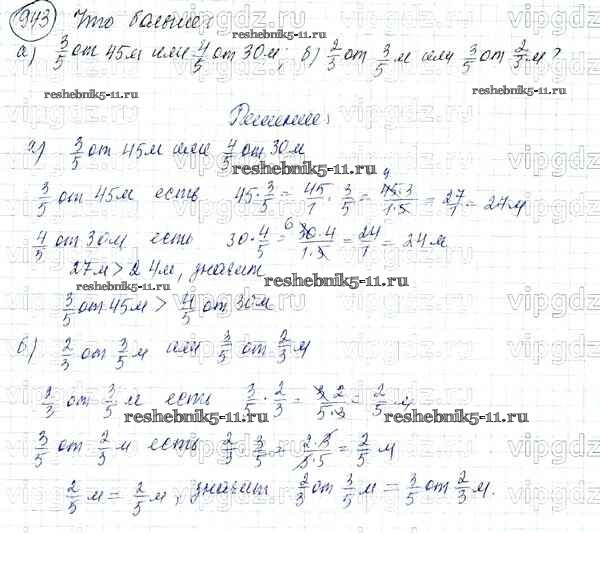 943 Что больше:
а) 3/5 от 45 м или 4/5 от 30 м; б) 2/3 от 3/5 м или 3/5 от 2/3 м?
reshebnik5-11.ru
reshebnik5-11.ru
Решение:
а) 3/5 от 45 м или 4/5 от 30 м
reshebnik5-11.ru
3/5 от 45 м есть 45 · 3/5 = 45/1 · 3/5 = 45·3/1·5 = 27/1 = 27 м
4/5 от 30 м есть 30 · 4/5 = 30·4/1·5 = 24/1 = 24 м
27 м > 24 м, значит
reshebnik5-11.ru
3/5 от 45 м > 4/5 от 30 м
б) 2/3 от 3/5 м или 3/5 от 2/3 м
2/3 от 3/5 м есть 3/5 · 2/3 = 3·2/5·3 = 2/5 м
reshebnik5-11.ru
reshebnik5-11.ru
3/5 от 2/3 м есть 2/3 · 3/5 = 2·3/3·5 = 2/5 м
2/5 м = 2/5 м, значит 2/3 от 3/5 м = 3/5 от 2/3 м.
reshebnik5-11.ru
vipgdz.ru